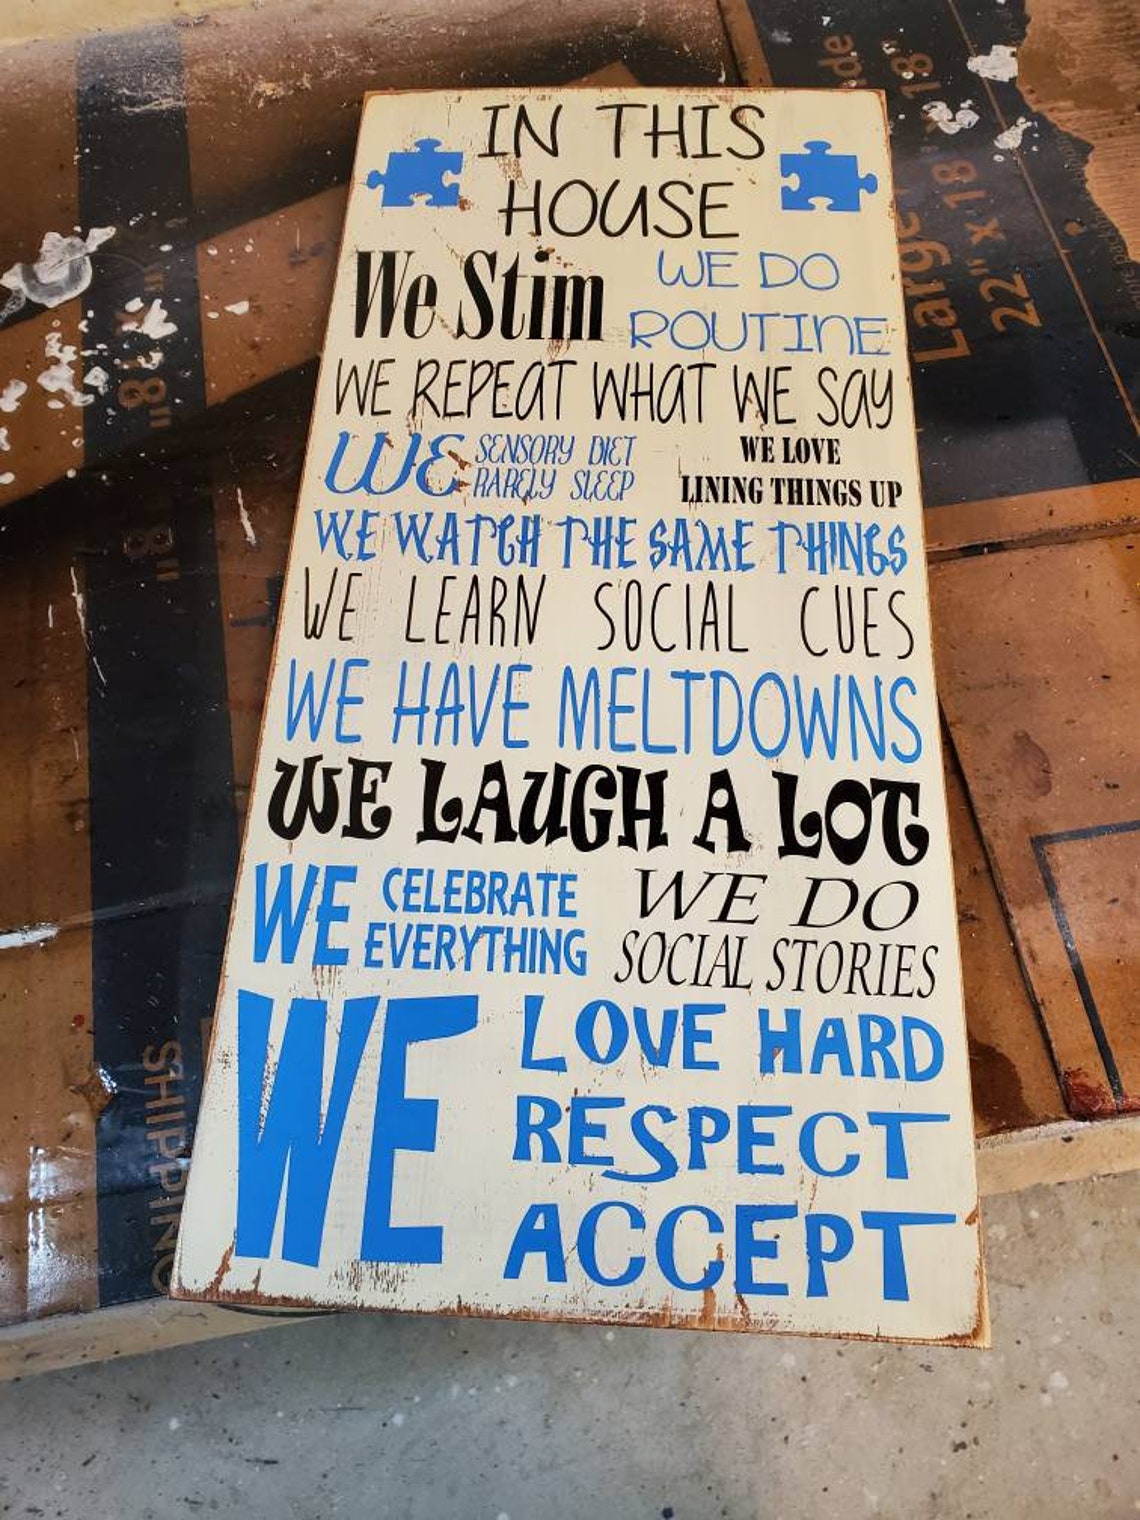 IN THIS
HOUSE
We Stim
WE DO
ROUTINE
WE REPEAT WHAT WE SAY
WE SENSORY DIET
RARELY SLEEP
WE LOVE
LINING THINGS UP
WE WATCH THE SAME THINGS
WE LEARN SOCIAL CUES
WE HAVE MELTDOWNS
WE LAUGH A LOT
WE CELEBRATE
EVERYTHING
WE DO
SOCIAL STORIES
WE LOVE HARD
RESPECT
ACCEPT
Large
22" x 18" x 18"
18"
18"
SHIPPING